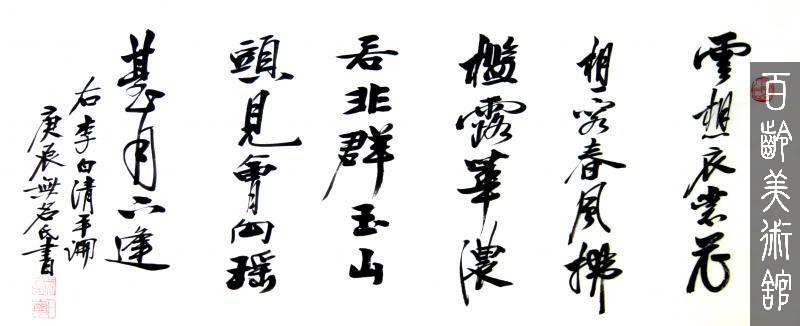 雲想衣裳花
想容春風拂
檻露華濃
若非群玉山
頭見會向瑤
臺月下逢
右李白清平調
庚辰無名氏書
百齡美術舘